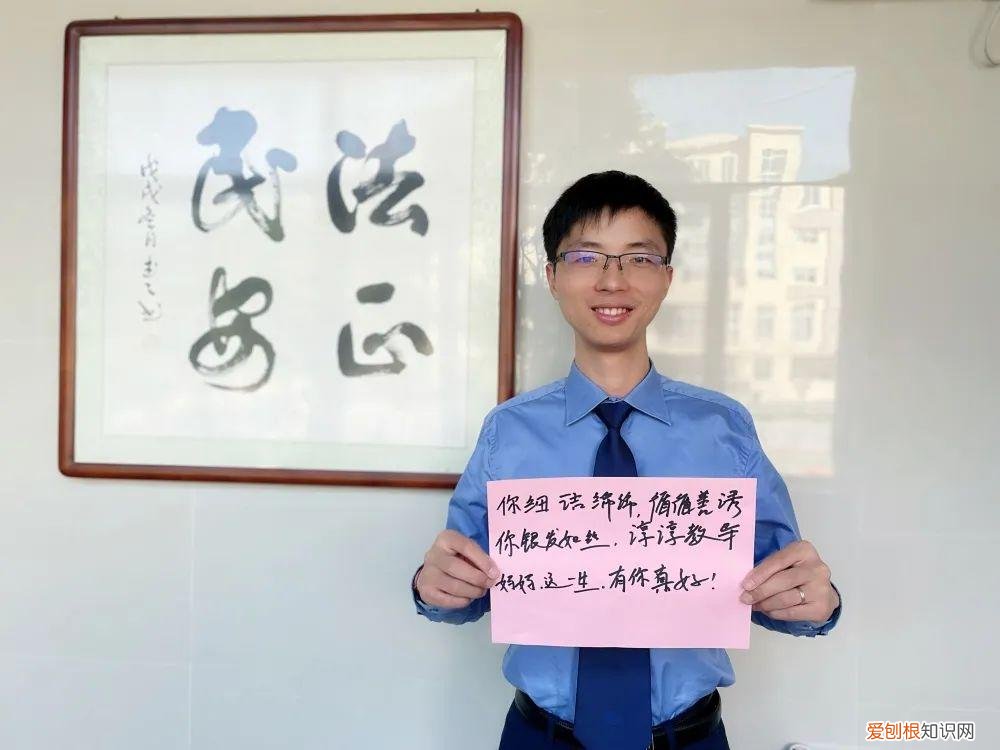 法正
民安
戊戌
你细语绵绵，循循善诱
你银发如丝，谆谆教导
妈妈，这一生，有你真好！
爱刨根知识网